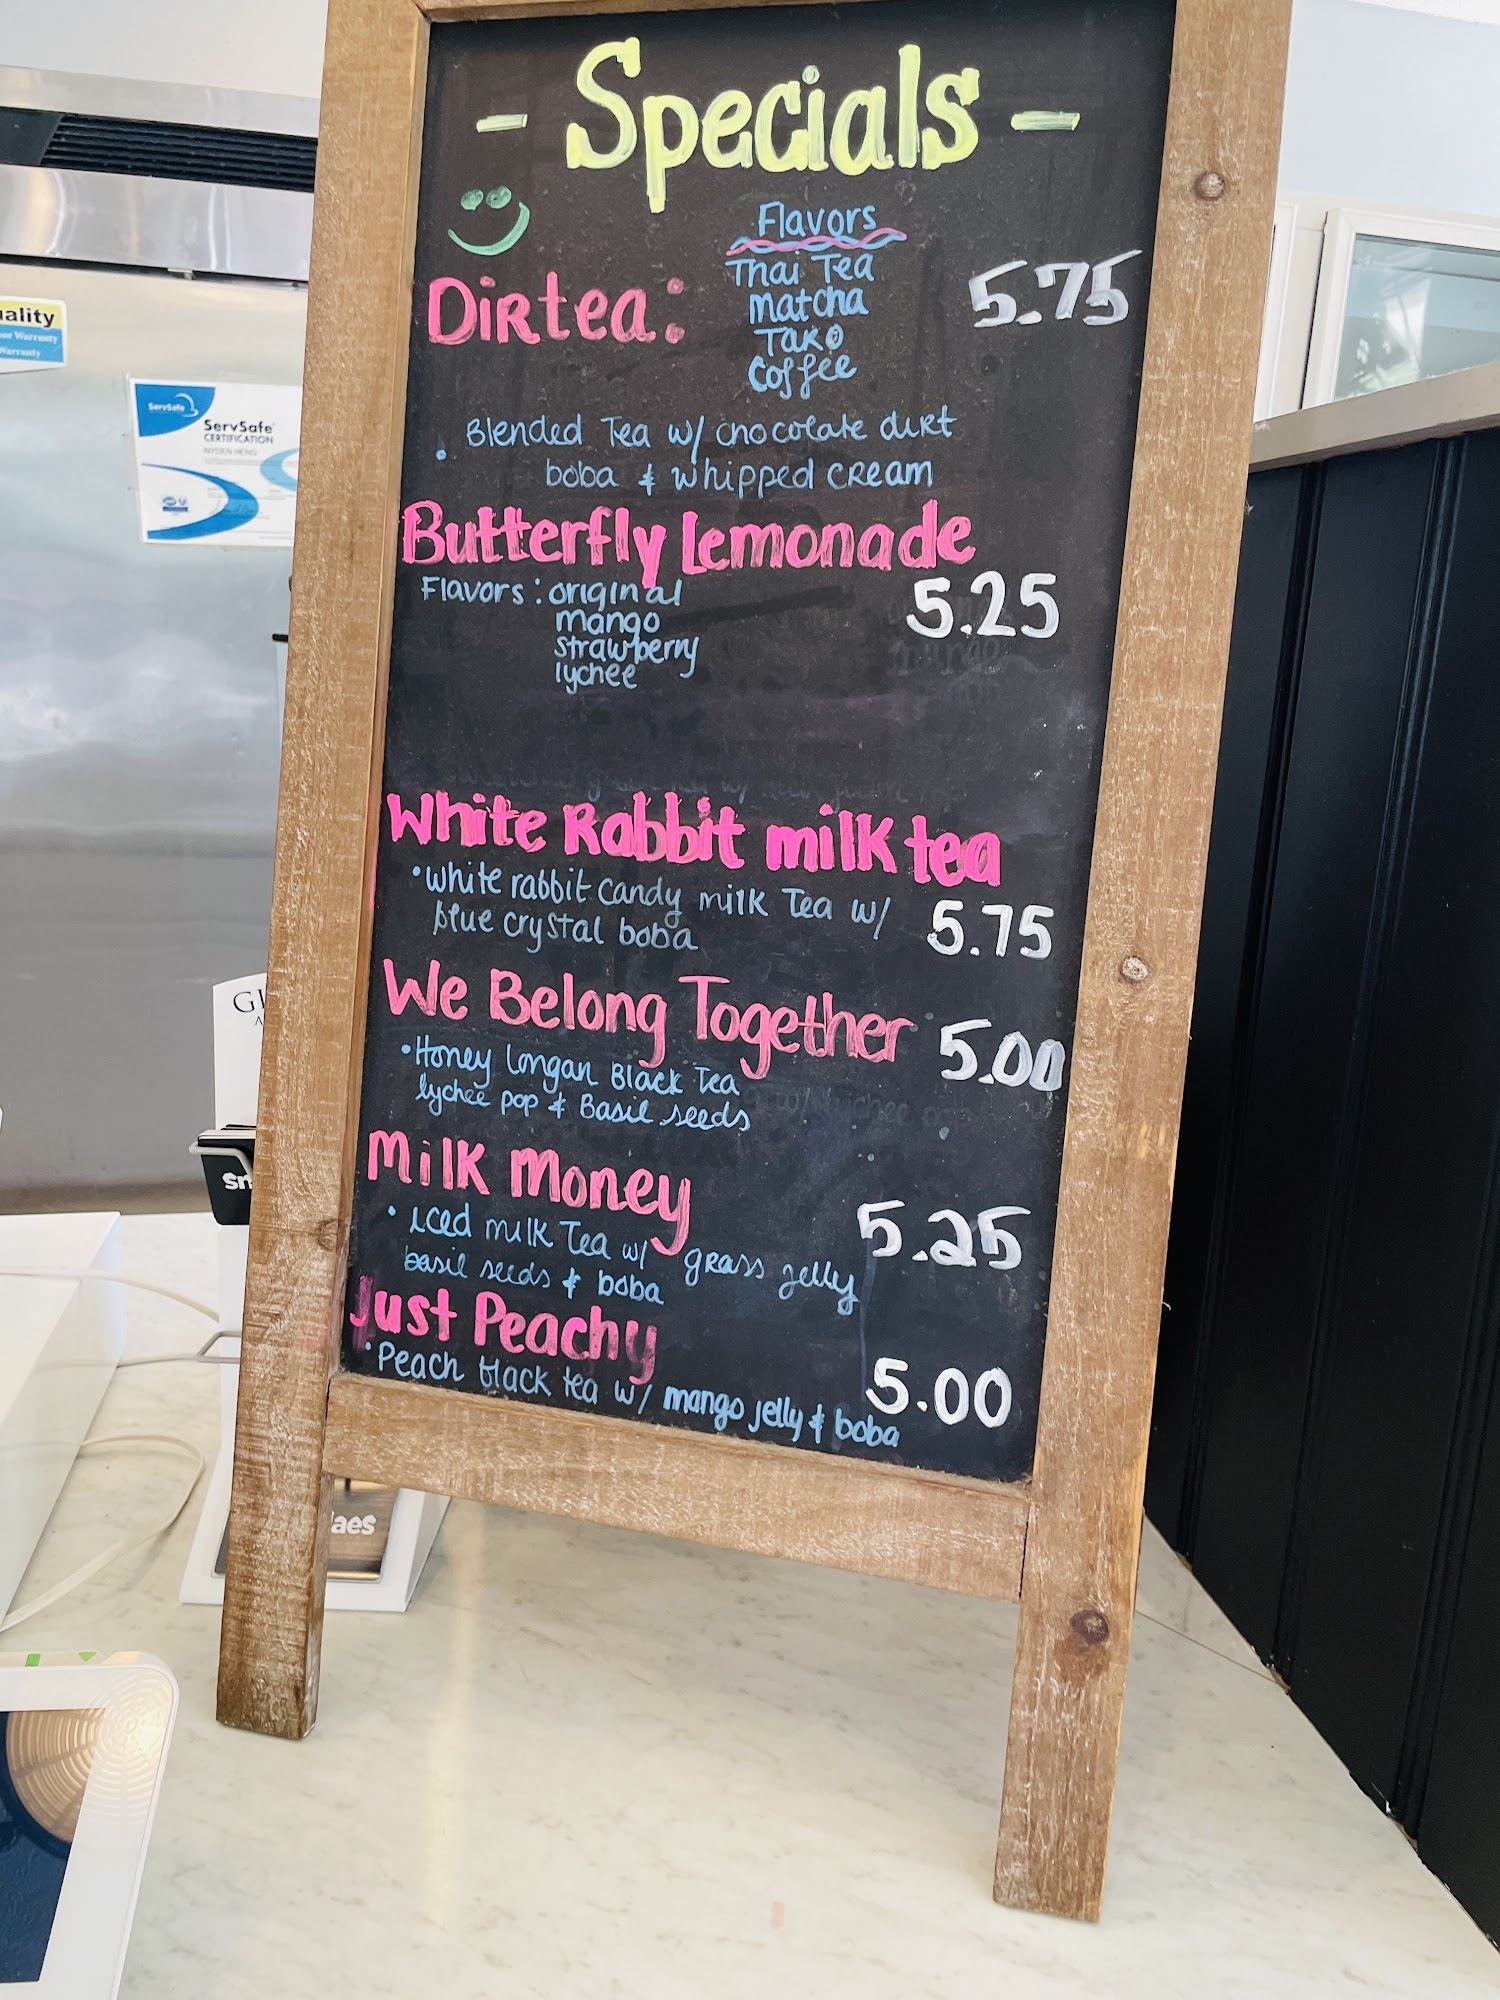 - Specials -
Flavors
Dirtea:
Thai Tea
Matcha
Taro
Coffee
5.75
Blended Tea w/ chocolate dirt
boba & whipped cream
Butterfly Lemonade
Flavors: original
mango
strawberry
lychee
5.25
White Rabbit milk tea
•white rabbit candy milk Tea w/
blue crystal boba
5.75
We Belong Together
5.00
•Honey Longan Black Tea
lychee pop & Basil seeds
Milk Money
• Iced milk Tea w/ grass jelly
basil seeds & boba
5.25
Just Peachy
•Peach black tea w/ mango jelly & boba
5.00
uality
Warranty
Warranty
ServSafe
ServSafe
CERTIFICATION
NYDEN HENG
GI
A
sn
aes